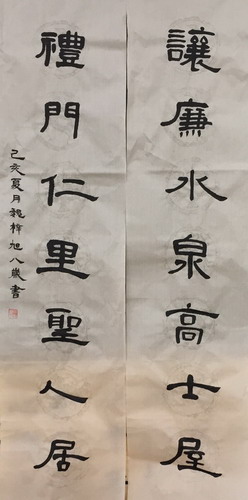 讓廉水泉高士屋
禮門仁里聖人居
己亥夏月龍梓旭八歲書